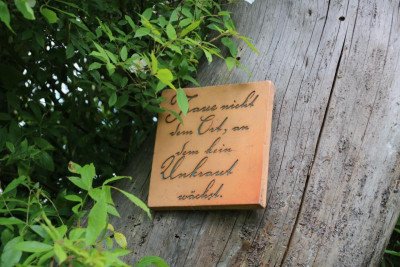 Traue nicht
dem Ort, an
dem kein
Unkraut
wächst.